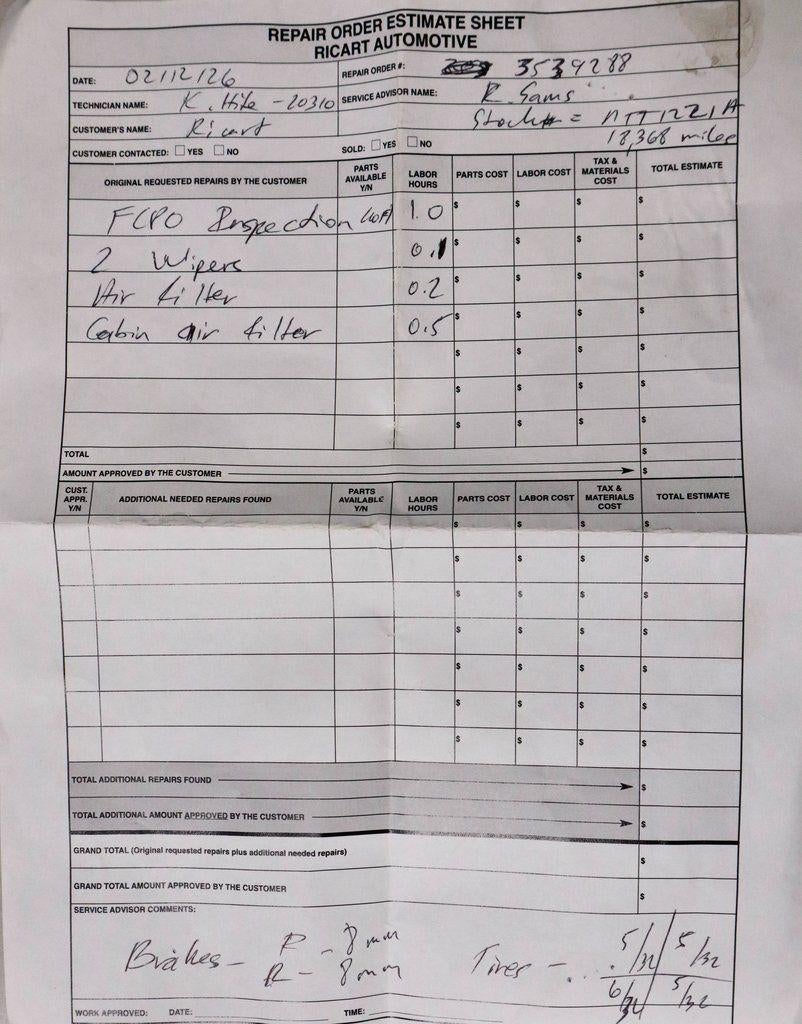 REPAIR ORDER ESTIMATE SHEET
RICART AUTOMOTIVE
DATE: 02/12/26 REPAIR ORDER #: 3539288
TECHNICIAN NAME: K. Hite - 20310 SERVICE ADVISOR NAME: R. Sams
CUSTOMER'S NAME: Ricart Stock# = NTT1221A
18,368 miles
CUSTOMER CONTACTED: YES NO SOLD: YES NO
ORIGINAL REQUESTED REPAIRS BY THE CUSTOMER PARTS AVAILABLE Y/N LABOR HOURS PARTS COST LABOR COST TAX & MATERIALS COST TOTAL ESTIMATE
FCPO Inspection 1.0 $ $ $ $
2 Wipers 0.1 $ $ $ $
Air filter 0.2 $ $ $ $
Cabin air filter 0.5 $ $ $ $
$ $ $ $
$ $ $ $
$ $ $ $
TOTAL $
AMOUNT APPROVED BY THE CUSTOMER $
CUST. APPR. Y/N ADDITIONAL NEEDED REPAIRS FOUND PARTS AVAILABLE Y/N LABOR HOURS PARTS COST LABOR COST TAX & MATERIALS COST TOTAL ESTIMATE
$ $ $ $
$ $ $ $
$ $ $ $
$ $ $ $
$ $ $ $
$ $ $ $
$ $ $ $
TOTAL ADDITIONAL REPAIRS FOUND $
TOTAL ADDITIONAL AMOUNT APPROVED BY THE CUSTOMER $
GRAND TOTAL (Original requested repairs plus additional needed repairs) $
GRAND TOTAL AMOUNT APPROVED BY THE CUSTOMER $
SERVICE ADVISOR COMMENTS:
Brakes - F - 8mm Tires - 5/32 5/32
R - 8mm 6/32 5/32
WORK APPROVED: DATE: TIME: